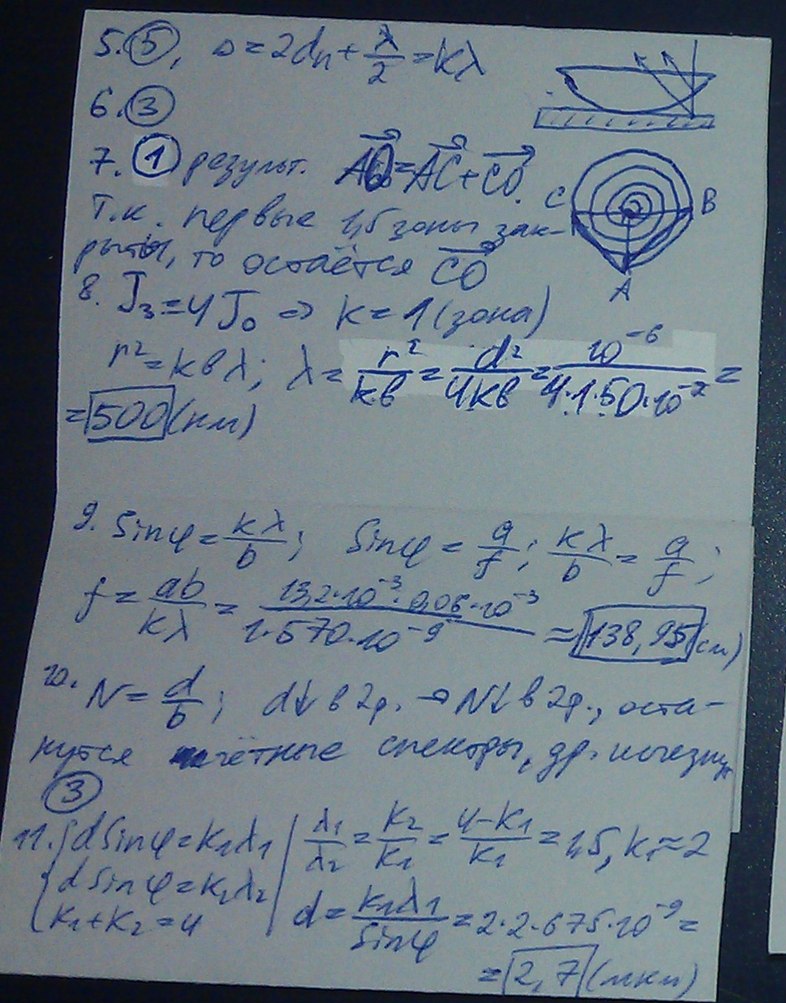 5. ⑤, Δ = 2dn + λ/2 = kλ
6. ③
7. ① результ. AO = AC + CO.
Т.к. первые 1,5 зоны зак-
рыты, то остаётся CO
C B
A
8. J₃ = 4J₀ ⇒ k = 1 (зона)
r² = kвλ; λ = r²/kв = d²/4kв = 10⁻⁶/4·1·50·10⁻² =
= 500 (нм)
9. Sinφ = kλ/b; Sinφ = a/f; kλ/b = a/f;
f = ab/kλ = 13,2·10⁻³·0,06·10⁻³/1·570·10⁻⁹ = 138,95 (см)
10. N = d/b; d↓ в 2р. → N↓ в 2р., оста-
нутся чётные спектры, др. исчезнут
③
11. { d Sinφ = k₁λ₁ | λ₁/λ₂ = k₂/k₁ = 4-k₁/k₁ = 1,5, k₁ ≈ 2
d sinφ = k₂λ₂
k₁ + k₂ = 4 | d = k₁λ₁/Sinφ = 2·2·675·10⁻⁹ =
= 2,7 (мкм)